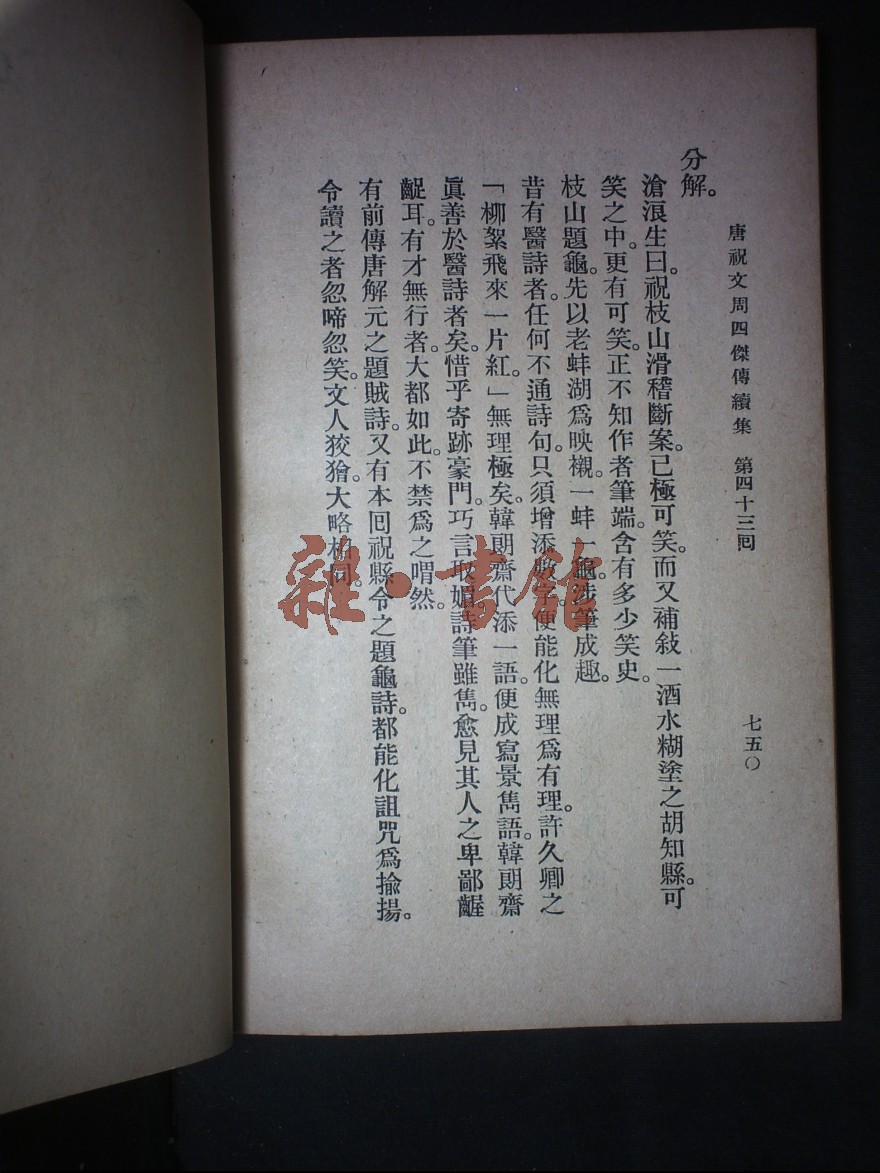 唐祝文周四傑傳續集　第四十三囘　七五〇
分解。
滄浪生曰。祝枝山滑稽斷案。已極可笑。而又補敍一酒水糊塗之胡知縣。可
笑之中。更有可笑。正不知作者筆端。含有多少笑史。
枝山題龜。先以老蚌湖爲映襯。一蚌一龜。涉筆成趣。
昔有醫詩者。任何不通詩句。只須增添數字。便能化無理爲有理。許久卿之
「柳絮飛來一片紅。」無理極矣。韓朗齋代添一語。便成寫景雋語。韓朗齋
眞善於醫詩者矣。惜乎寄跡豪門。巧言取媚。詩筆雖雋。愈見其人之卑鄙齷
齪耳。有才無行者。大都如此。不禁爲之喟然。
有前傳唐解元之題賊詩。又有本囘祝縣令之題龜詩。都能化詛咒爲揄揚。
令讀之者。忽啼忽笑。文人狡獪。大略相同。
雜·書館